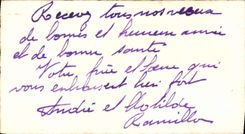 Recevez tous nos vœux
de bonne et heureuse année
et de bonne santé
Votre frère et sœur qui
vous embrassent bien fort
André et Clotilde